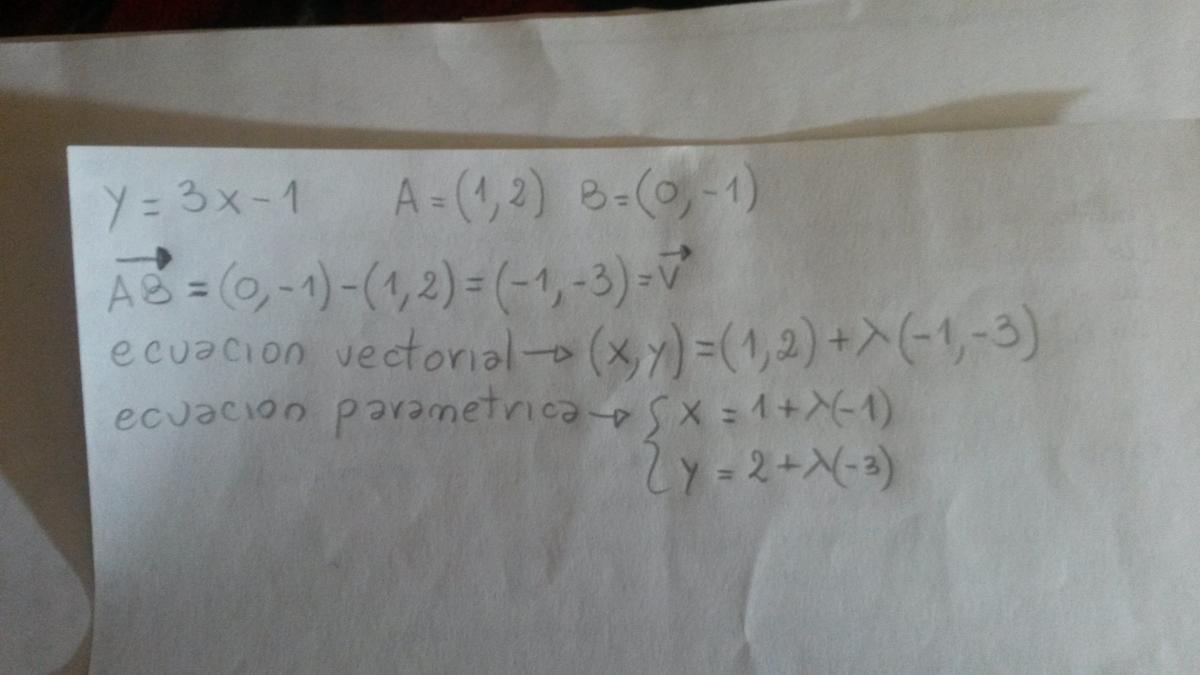 y = 3x - 1 A = (1,2) B = (0,-1)
AB = (0,-1) - (1,2) = (-1,-3) = V
ecuacion vectorial → (x,y) = (1,2) + λ(-1,-3)
ecuacion parametrica → { x = 1 + λ(-1)
y = 2 + λ(-3)